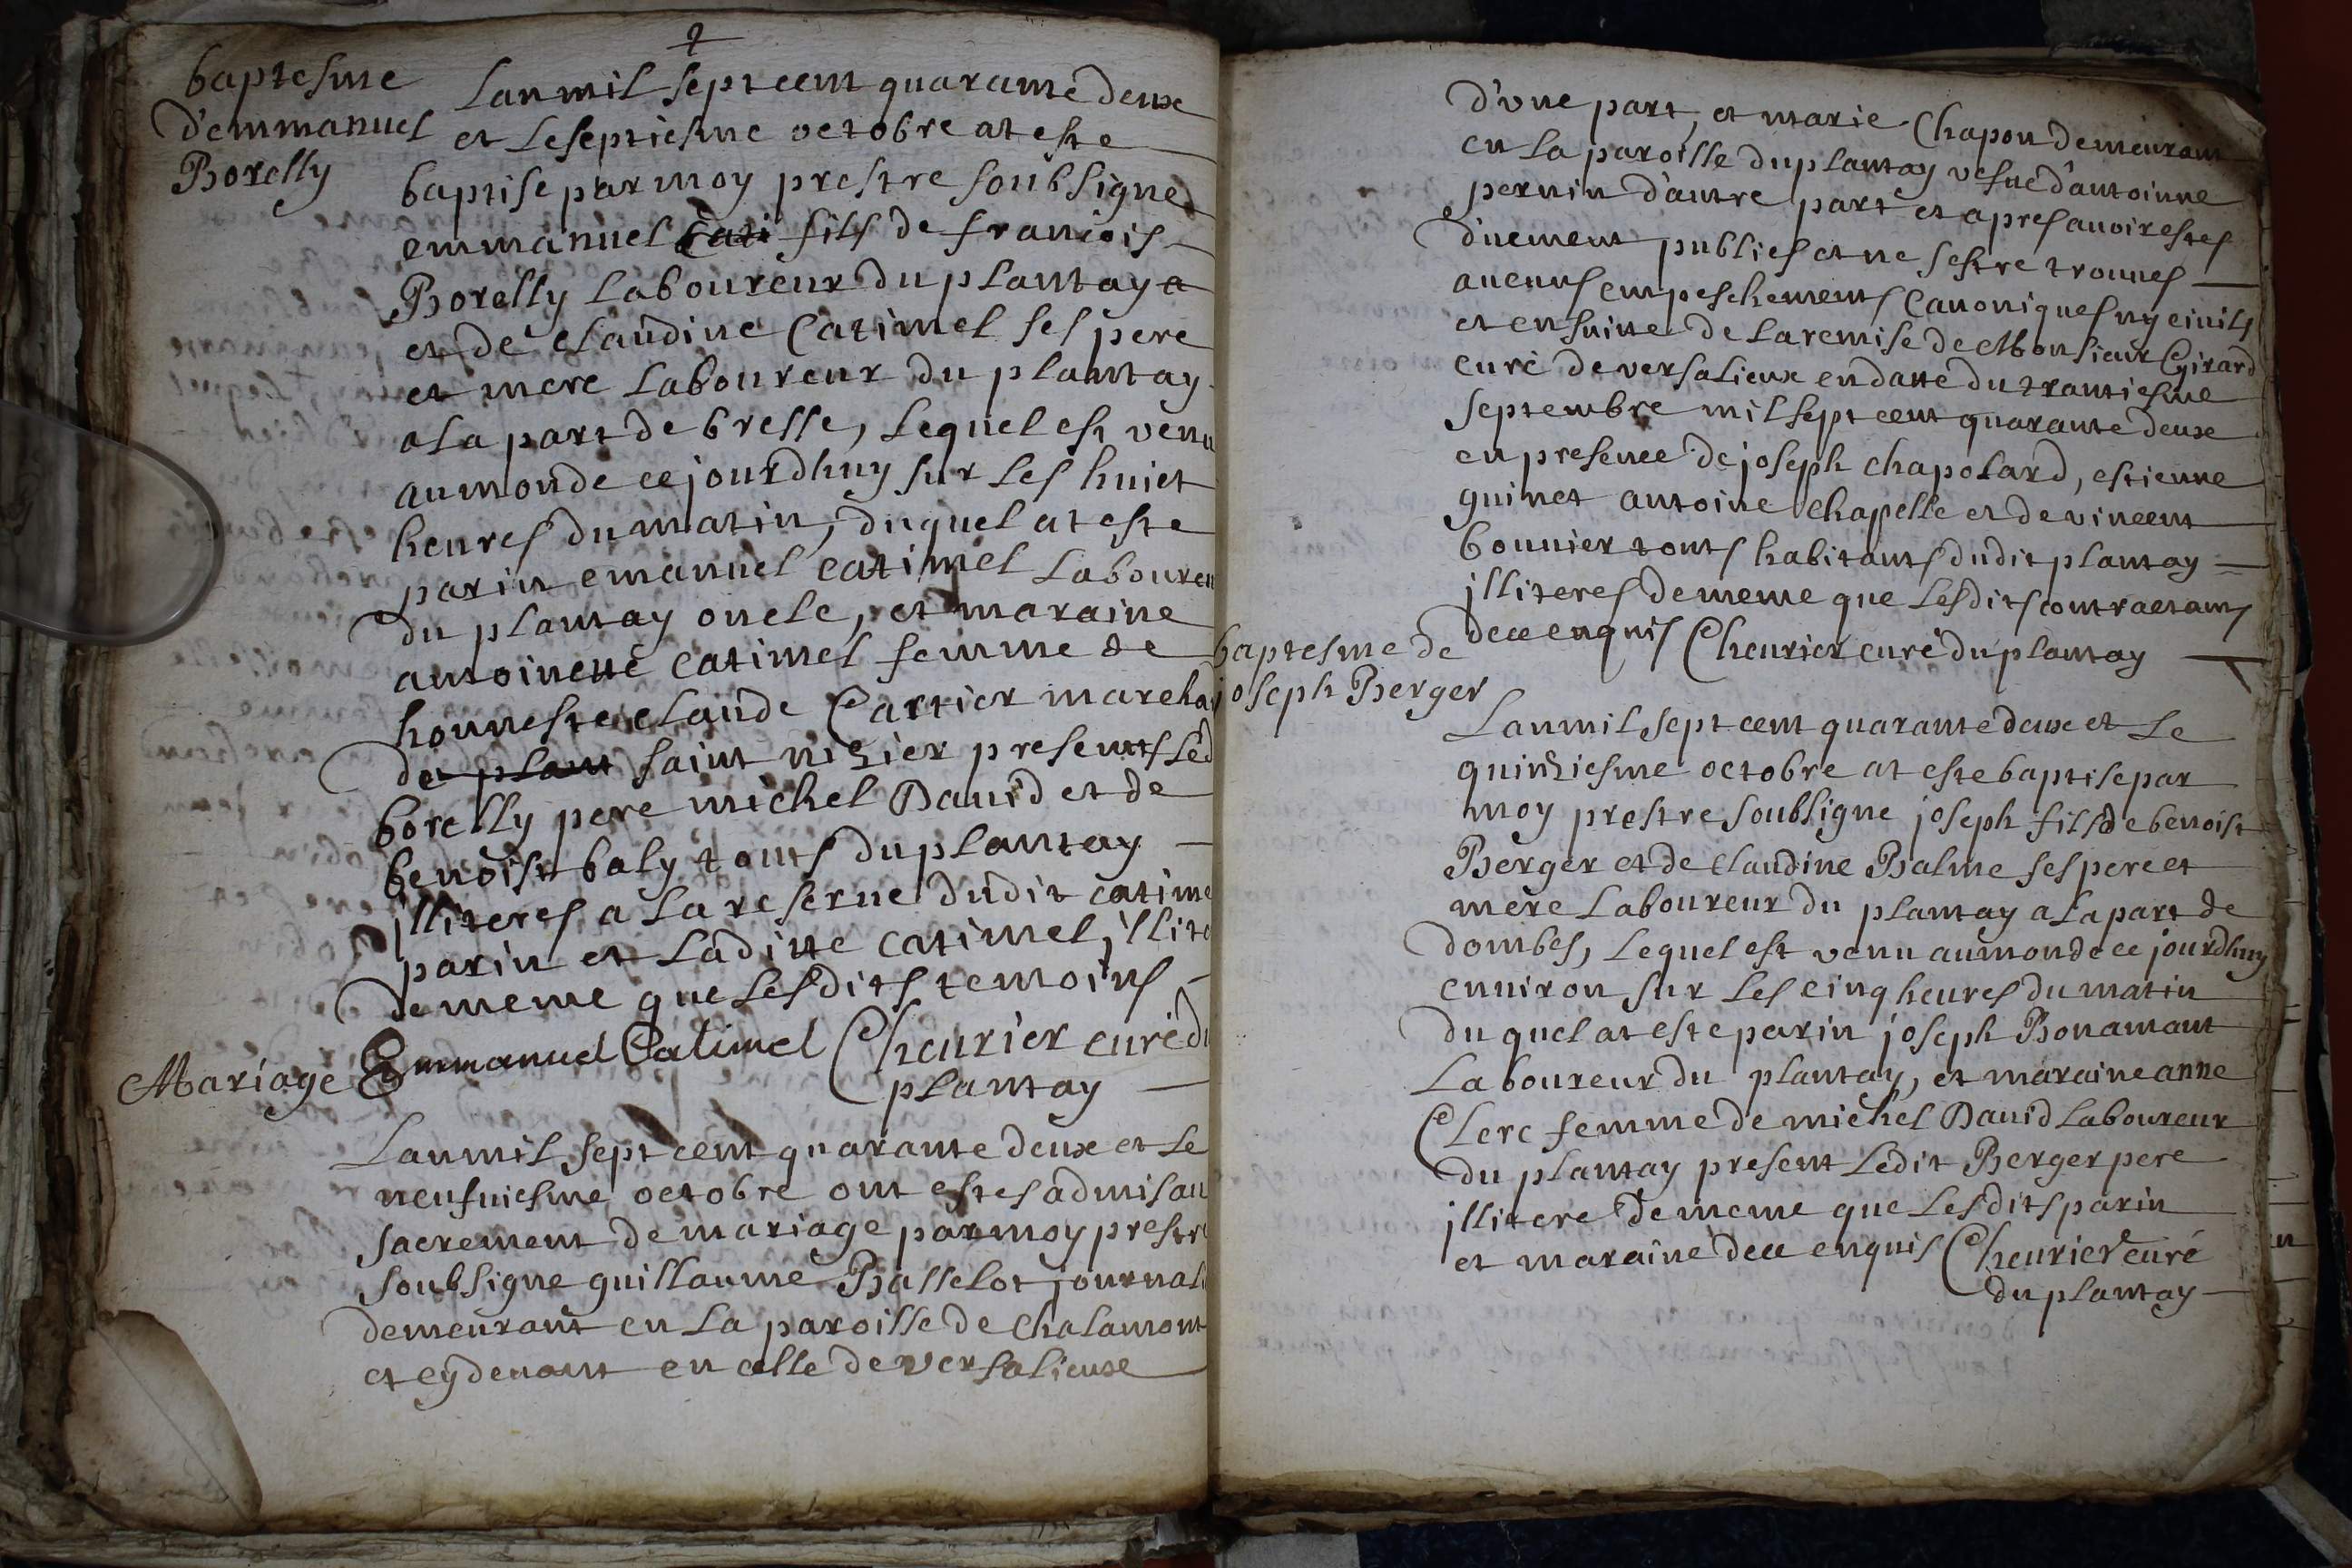 baptesme
d'emmanuel
Borelly
Lanmil sept cent quarante deux
et Le septiesme octobre at este
baptise par moy prestre soubsigne
emmanuel fils de francois
Borelly Laboureur du plantay
et de claudine Catimel ses pere
et mere Laboureur du plantay
a La part de bresse, Lequel est venu
au monde ce jourdhuy sur Les huict
heures du matin, duquel at este
parin emanuel catimel Laboureu
du plantay oncle, et maraine
antoinette catimel femme de
honneste claude Cartier marcha
de plant saint nizier presents Led
borelly pere michel David et de
benoist baly touts du plantay
jlliteres a La reserve dudit catime
parin et Laditte catimel jllite
de meme que Lesdits temoins
Emmanuel Catimel Cheurier curé du
plantay
Mariage
Lanmil sept cent quarante deux et Le
neufuiesme octobre ont estes admis au
sacrement de mariage par moy prestre
soubsigne guillaume Basselot journali
demeurant en La paroisse de chalamont
et cy devant en celle de versalieux
d'une part, et marie Chapon demeurant
en La paroisse du plantay vefue d'antoinne
pernin d'autre part et apres auoir estes
duement publies et ne s'estre trouues
aucuns empeschements Canoniques ny ciuils
et ensuitte de La remise de Monsieur Girard
curé de versalieux en datte du trantiesme
septembre mil sept cent quarante deux
en presence de joseph chapolard, estienne
guinet antoine chapelle et de vincent
bouuier touts habitants dudit plantay
jlliteres de meme que Lesdits contractants
de ce enquis Cheurier curé du plantay
baptesme de
joseph Berger
Lanmil sept cent quarante deux et Le
quinziesme octobre at este baptise par
moy prestre soubsigne joseph fils de benoist
Berger et de claudine Balme ses pere et
mere Laboureur du plantay a La part de
dombes, Lequel est venu au monde ce jourdhuy
enuiron sur Les cinq heures du matin
du quel at este parin joseph Bonamant
Laboureur du plantay, et maraine anne
Clerc femme de michel Dauid Laboureur
du plantay present Ledit Berger pere
jllitere de meme que Lesdits parin
et maraine de ce enquis Cheurier curé
du plantay